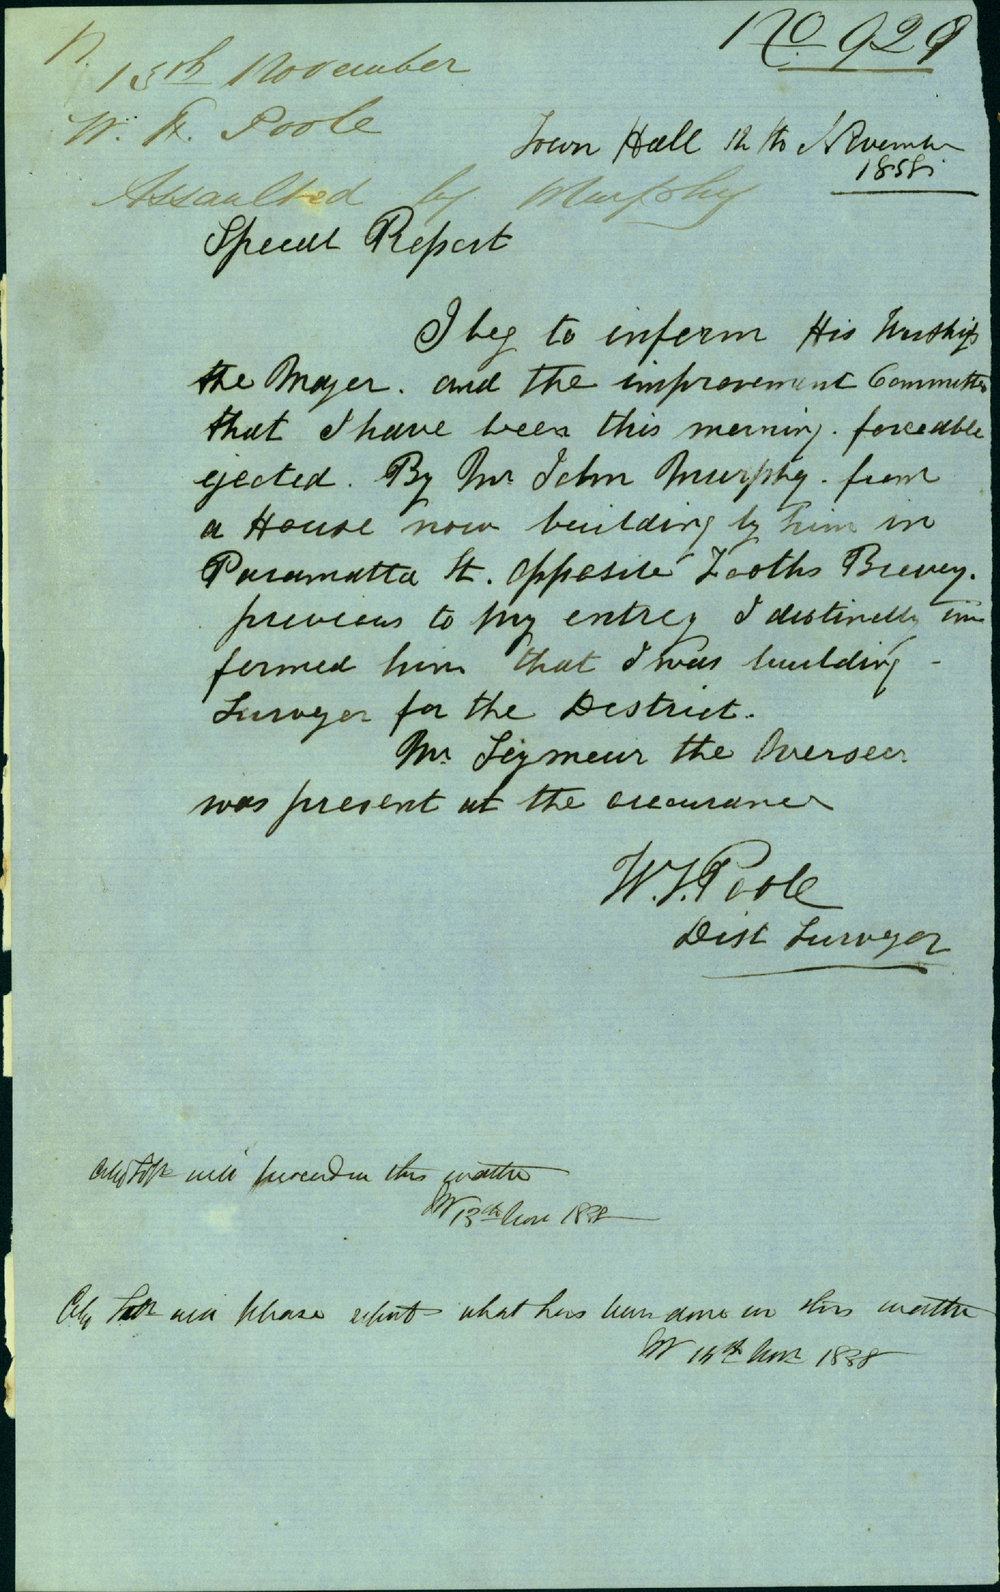 No 929
15th November
W. H. Poole
Assaulted by Murphy
Town Hall 12th November
1858
Speeal Report
I beg to inform His Worship
the Mayer. and the improvement Committee
that I have been this morning. forceable
ejected. By Mr John Murphy. from
a House now building by him in
Paramatta St. opposite Tooths Brewey.
previous to my entrey I distinctly in
formed him that I was building -
Surveyor for the District.
Mr Seymour the Overseer
was present at the occurance
W. F. Poole
Dist Surveyor
City Solr will proceed in this matter
13th Nov 1858
City Solr will please report what has been done in this matter
Nov 1858